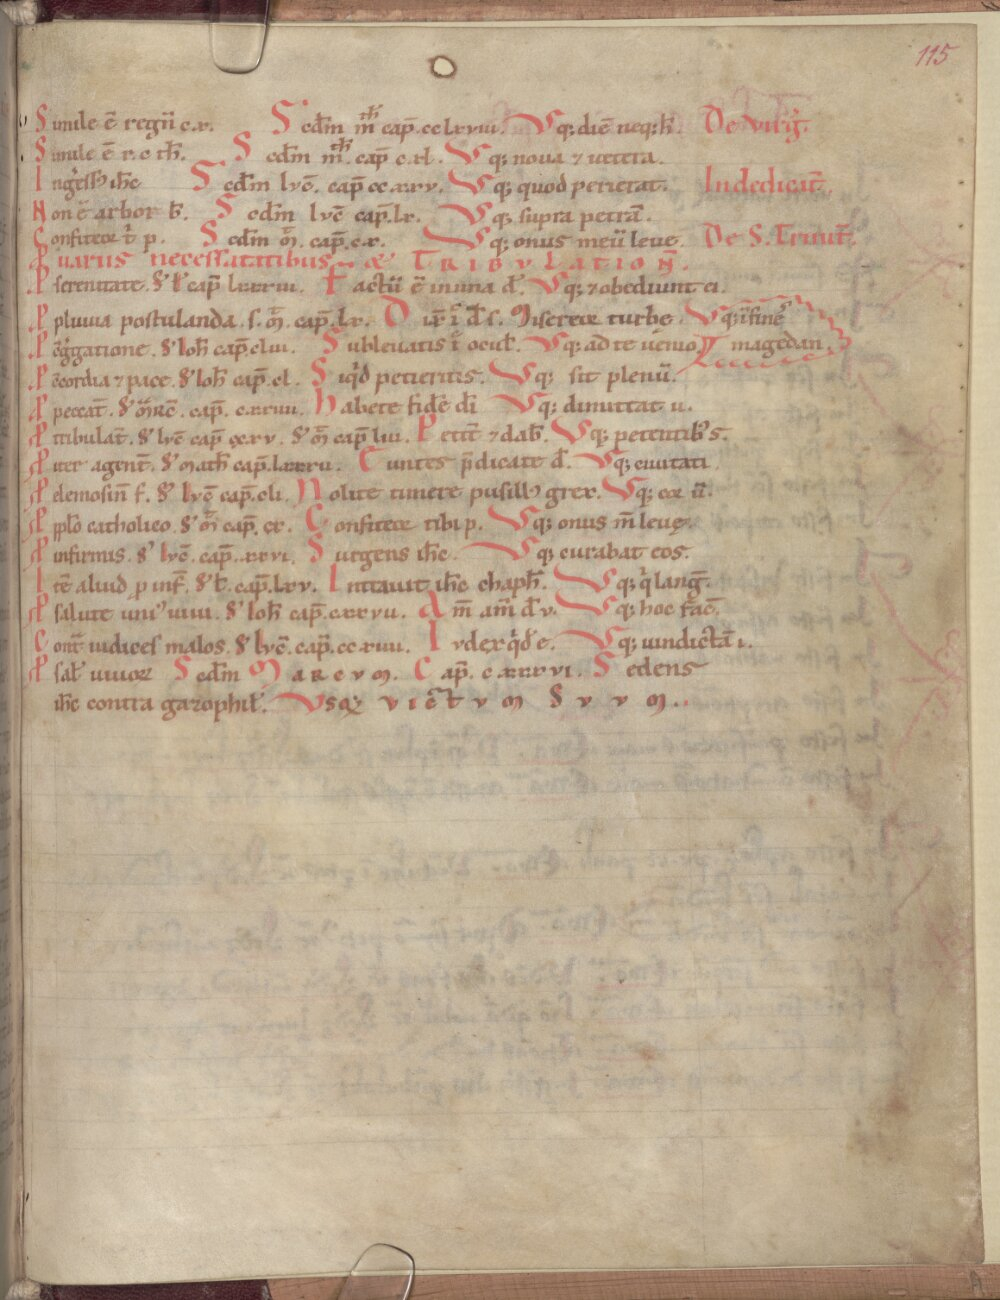 115
Simile ē regnū c.x. Scdm mth cap̄. cclxviii. Vsq; diē neq; h̄. De virḡ.
Simile ē r. c. th̄. Scdm mth. cap̄ c.xl. Vsq; noua ⁊ uetera.
Ingress; ihc Scdm lvc̄. cap̄ ccxxv. Vsq; quod perierat. In dedicat̄.
Non ē arbor b̄. Scdm lvc̄ cap̄. lx. Vsq; supra petrā.
Confiteor t̄ p. Scdm m̄. cap̄. c.x. Vsq; onus meū leue. De S. Trinit̄.
P uariis necessitatibus ⁊ TRIBVLATION̄.
P serenitate. S' l' cap̄ lxxxiii. Factū ē in una d̄. Vsq; ⁊ obediunt ei.
P pluuia postulanda. s. m̄. cap̄. lx. Misereor turbe. Vsq; ī finē
P cap̄. clvi. Subleuatis ī ocul'. Vsq; ad te uenio. magedan
P cordia ⁊ pace. S' Ioh̄ cap̄. cl. Si qd petieritis. Vsq; sit plenū.
P peccat̄. S' mrc̄. cap̄. cxxvii. Habete fidē di Vsq; dimittat u.
P tribulat̄. S' lvc̄ cap̄ cxxv. S' m̄ cap̄ liii. Petit̄ ⁊ dab̄. Vsq; petentib; s.
P iter agent̄. S' math̄ cap̄. lxxxii. Euntes p̄dicate d̄. Vsq;
P elemosin̄ f. S' lvc̄ cap̄. cli. Nolite timere pusill; grex. Vsq; cor ū.
P pplo catholico. S' m̄ cap̄. cx. Confiteor tibi p. Vsq; onus m̄ leue.
P infirmis. S' lvc̄. cap̄. xxvi. Surgens ihc. Vsq; curabat eos.
Itē aliud p inf. S' l'. cap̄. lxv. Intrauit ihc chaph̄. Vsq; q' lanḡ.
P salute uni' uiui. S' Ioh̄ cap̄. cxxvii. Am̄ am̄ d̄ v. Vsq; hoc fac̄.
Cont̄ iudices malos. S' lvc̄. cap̄. ccxiii. Ivdex qd' e. Vsq; uindictā i.
P sal' uiuor Scdm Marcvm. Cap̄. cxxxvi. Sedens
ihc contra gazophil'. Vsq; victvm Svvm.